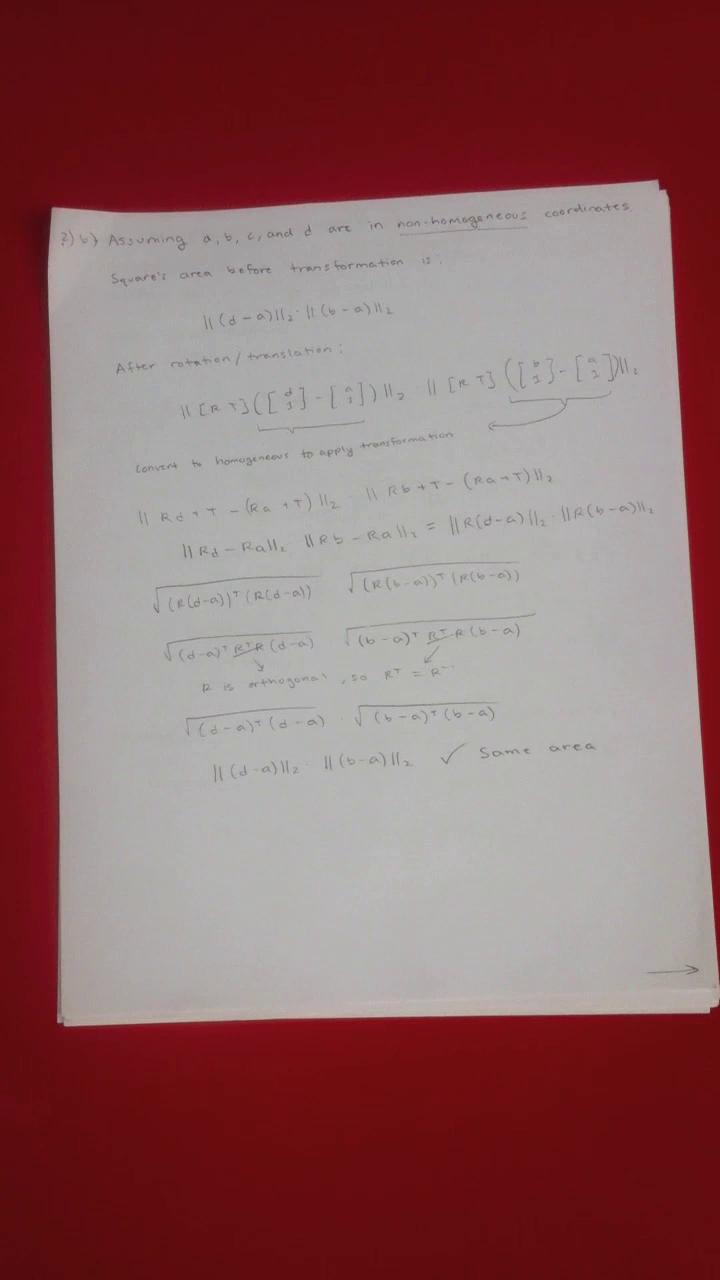 2) b) Assuming a, b, c, and d are in non-homogeneous coordinates.
Square's area before transformation is:
||(d-a)||₂ · ||(b-a)||₂
After rotation/translation:
||[R T]([d 1] - [a 1])||₂ · ||[R T]([b 1] - [a 1])||₂
convert to homogeneous to apply transformation
||Rd+T-(Ra+T)||₂ · ||Rb+T-(Ra+T)||₂
||Rd-Ra||₂ · ||Rb-Ra||₂ = ||R(d-a)||₂ · ||R(b-a)||₂
√(R(d-a))ᵀ(R(d-a)) √(R(b-a))ᵀ(R(b-a))
√(d-a)ᵀRᵀR(d-a) √(b-a)ᵀRᵀR(b-a)
R is orthogonal, so Rᵀ = R⁻¹
√(d-a)ᵀ(d-a) · √(b-a)ᵀ(b-a)
||(d-a)||₂ · ||(b-a)||₂ ✓ Same area
→